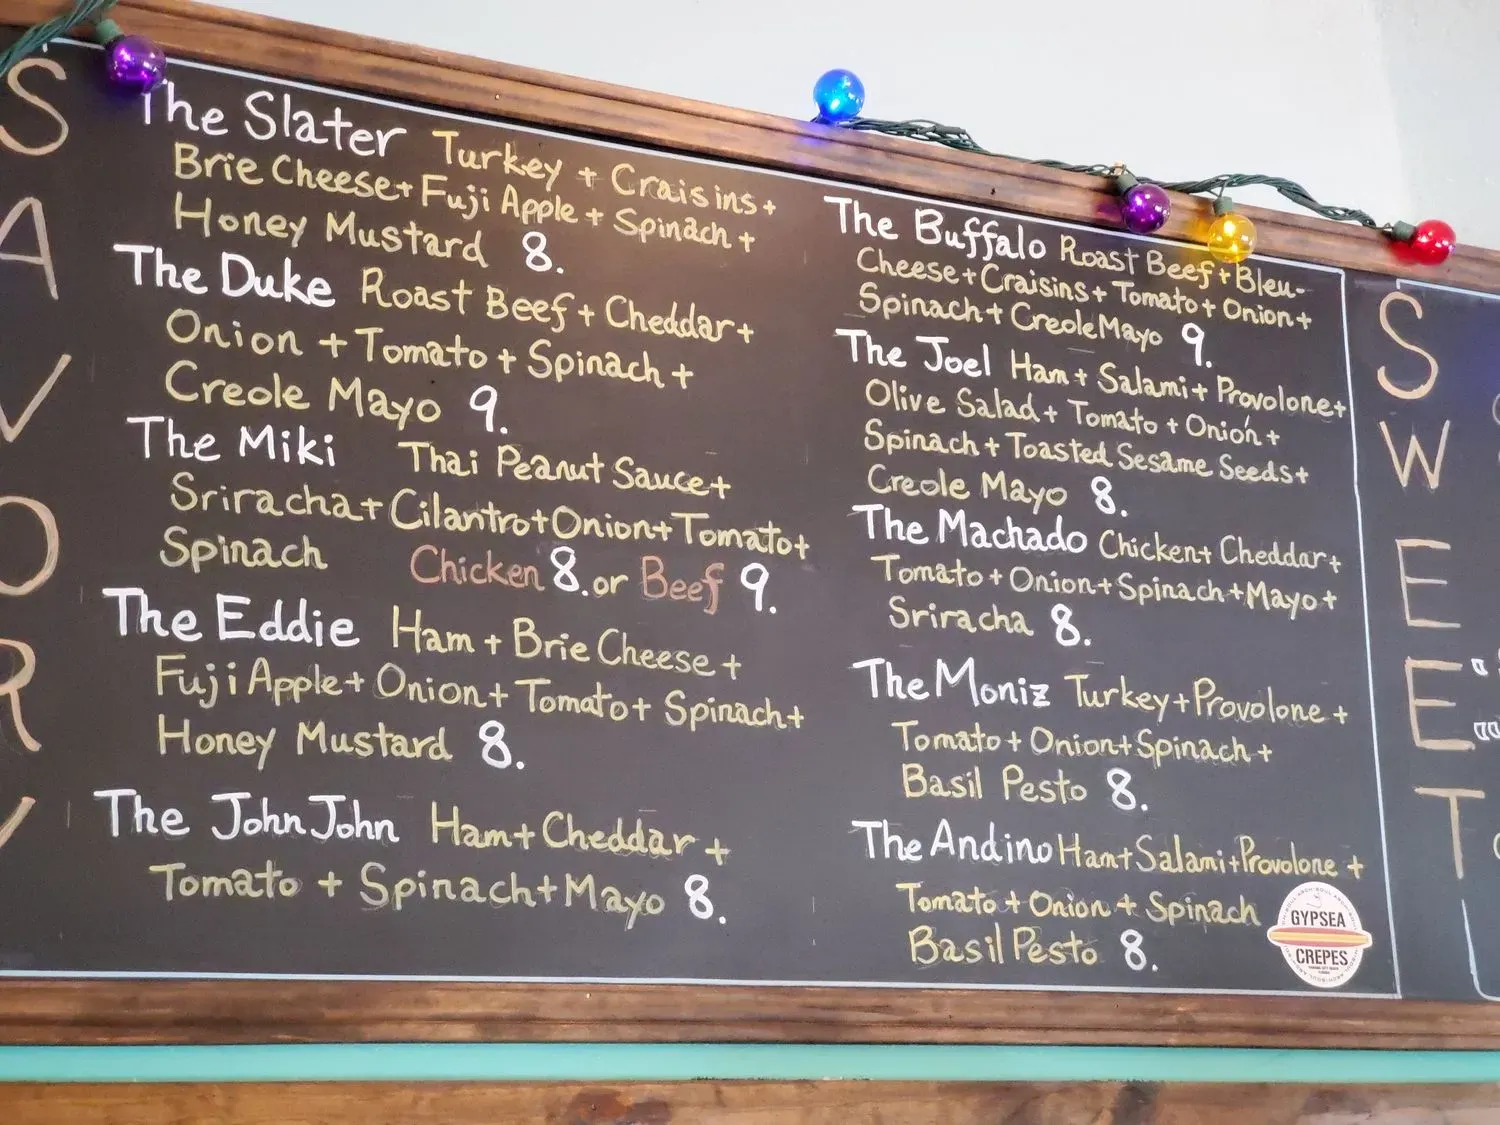 SAVORY
The Slater Turkey + Craisins +
Brie Cheese + Fuji Apple + Spinach +
Honey Mustard 8.
The Duke Roast Beef + Cheddar +
Onion + Tomato + Spinach +
Creole Mayo 9.
The Miki Thai Peanut Sauce +
Sriracha + Cilantro + Onion + Tomato +
Spinach Chicken 8. or Beef 9.
The Eddie Ham + Brie Cheese +
Fuji Apple + Onion + Tomato + Spinach +
Honey Mustard 8.
The John John Ham + Cheddar +
Tomato + Spinach + Mayo 8.
The Buffalo Roast Beef + Bleu-
Cheese + Craisins + Tomato + Onion +
Spinach + Creole Mayo 9.
The Joel Ham + Salami + Provolone +
Olive Salad + Tomato + Onion +
Spinach + Toasted Sesame Seeds +
Creole Mayo 8.
The Machado Chicken + Cheddar +
Tomato + Onion + Spinach + Mayo +
Sriracha 8.
The Moniz Turkey + Provolone +
Tomato + Onion + Spinach +
Basil Pesto 8.
The Andino Ham + Salami + Provolone +
Tomato + Onion + Spinach
Basil Pesto 8.
GYPSEA
CREPES
SWEET